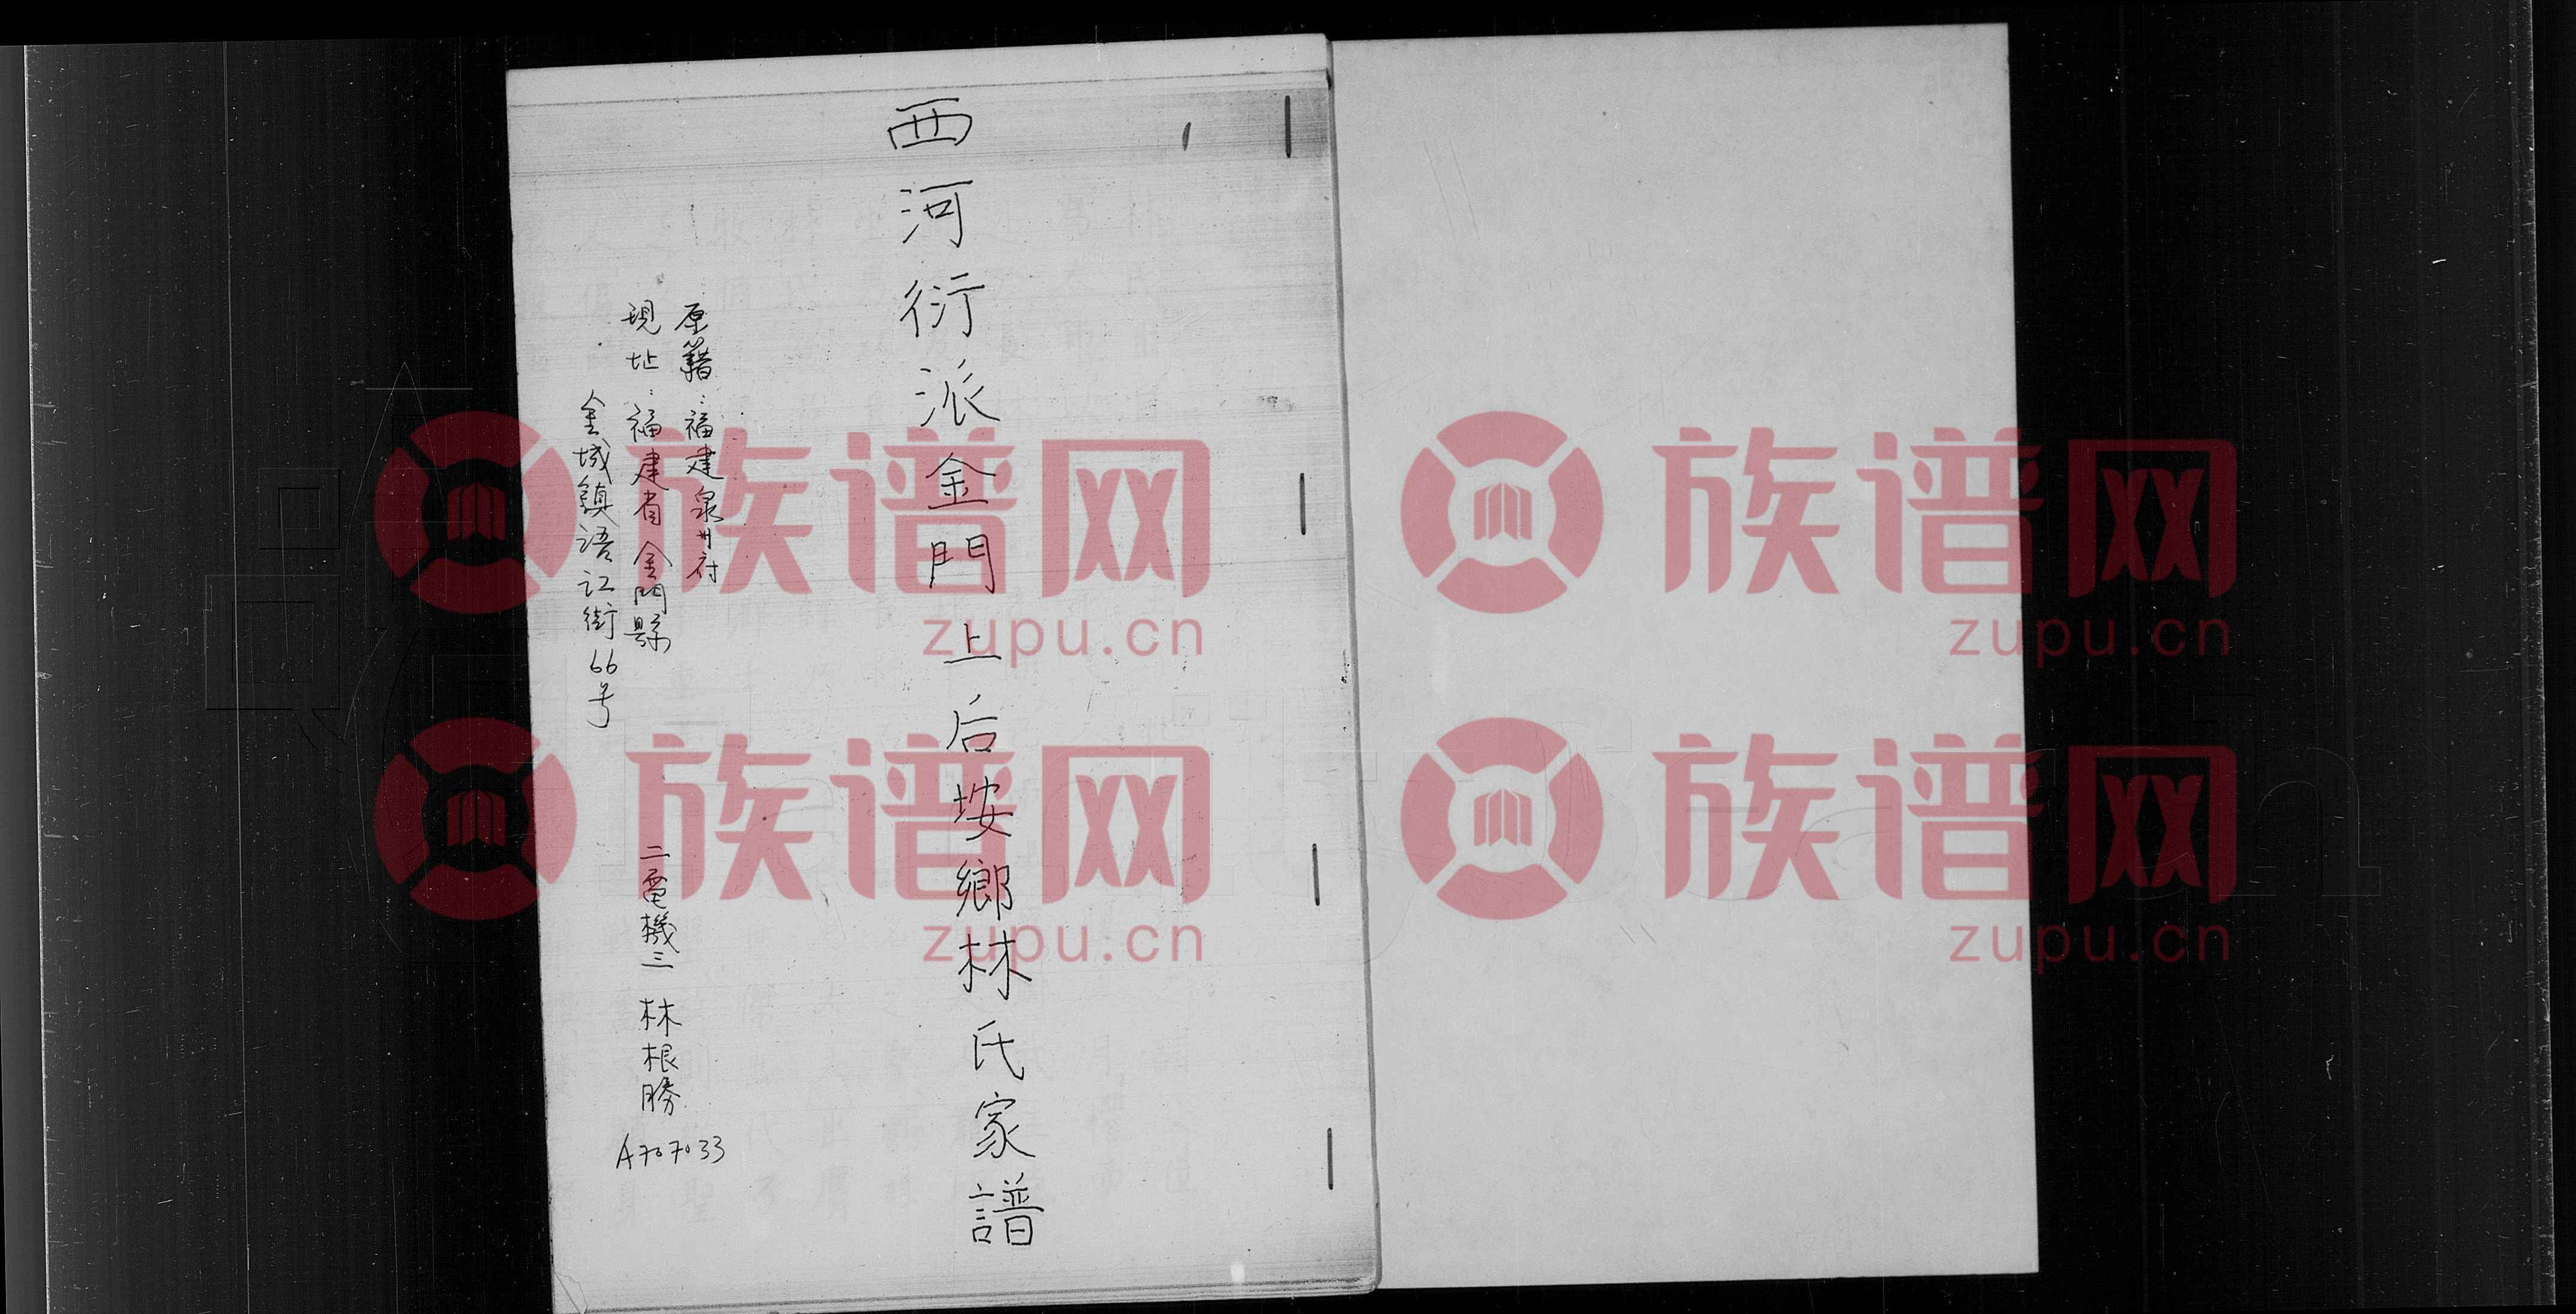 西河衍派金門上后垵鄉林氏家譜
原籍:福建泉州府
現址:福建省金門縣
金城鎮浯江街66号
二電機三 林根勝 A707033
族谱网 zupu.cn
族谱网 zupu.cn
族谱网 zupu.cn
族谱网 zupu.cn